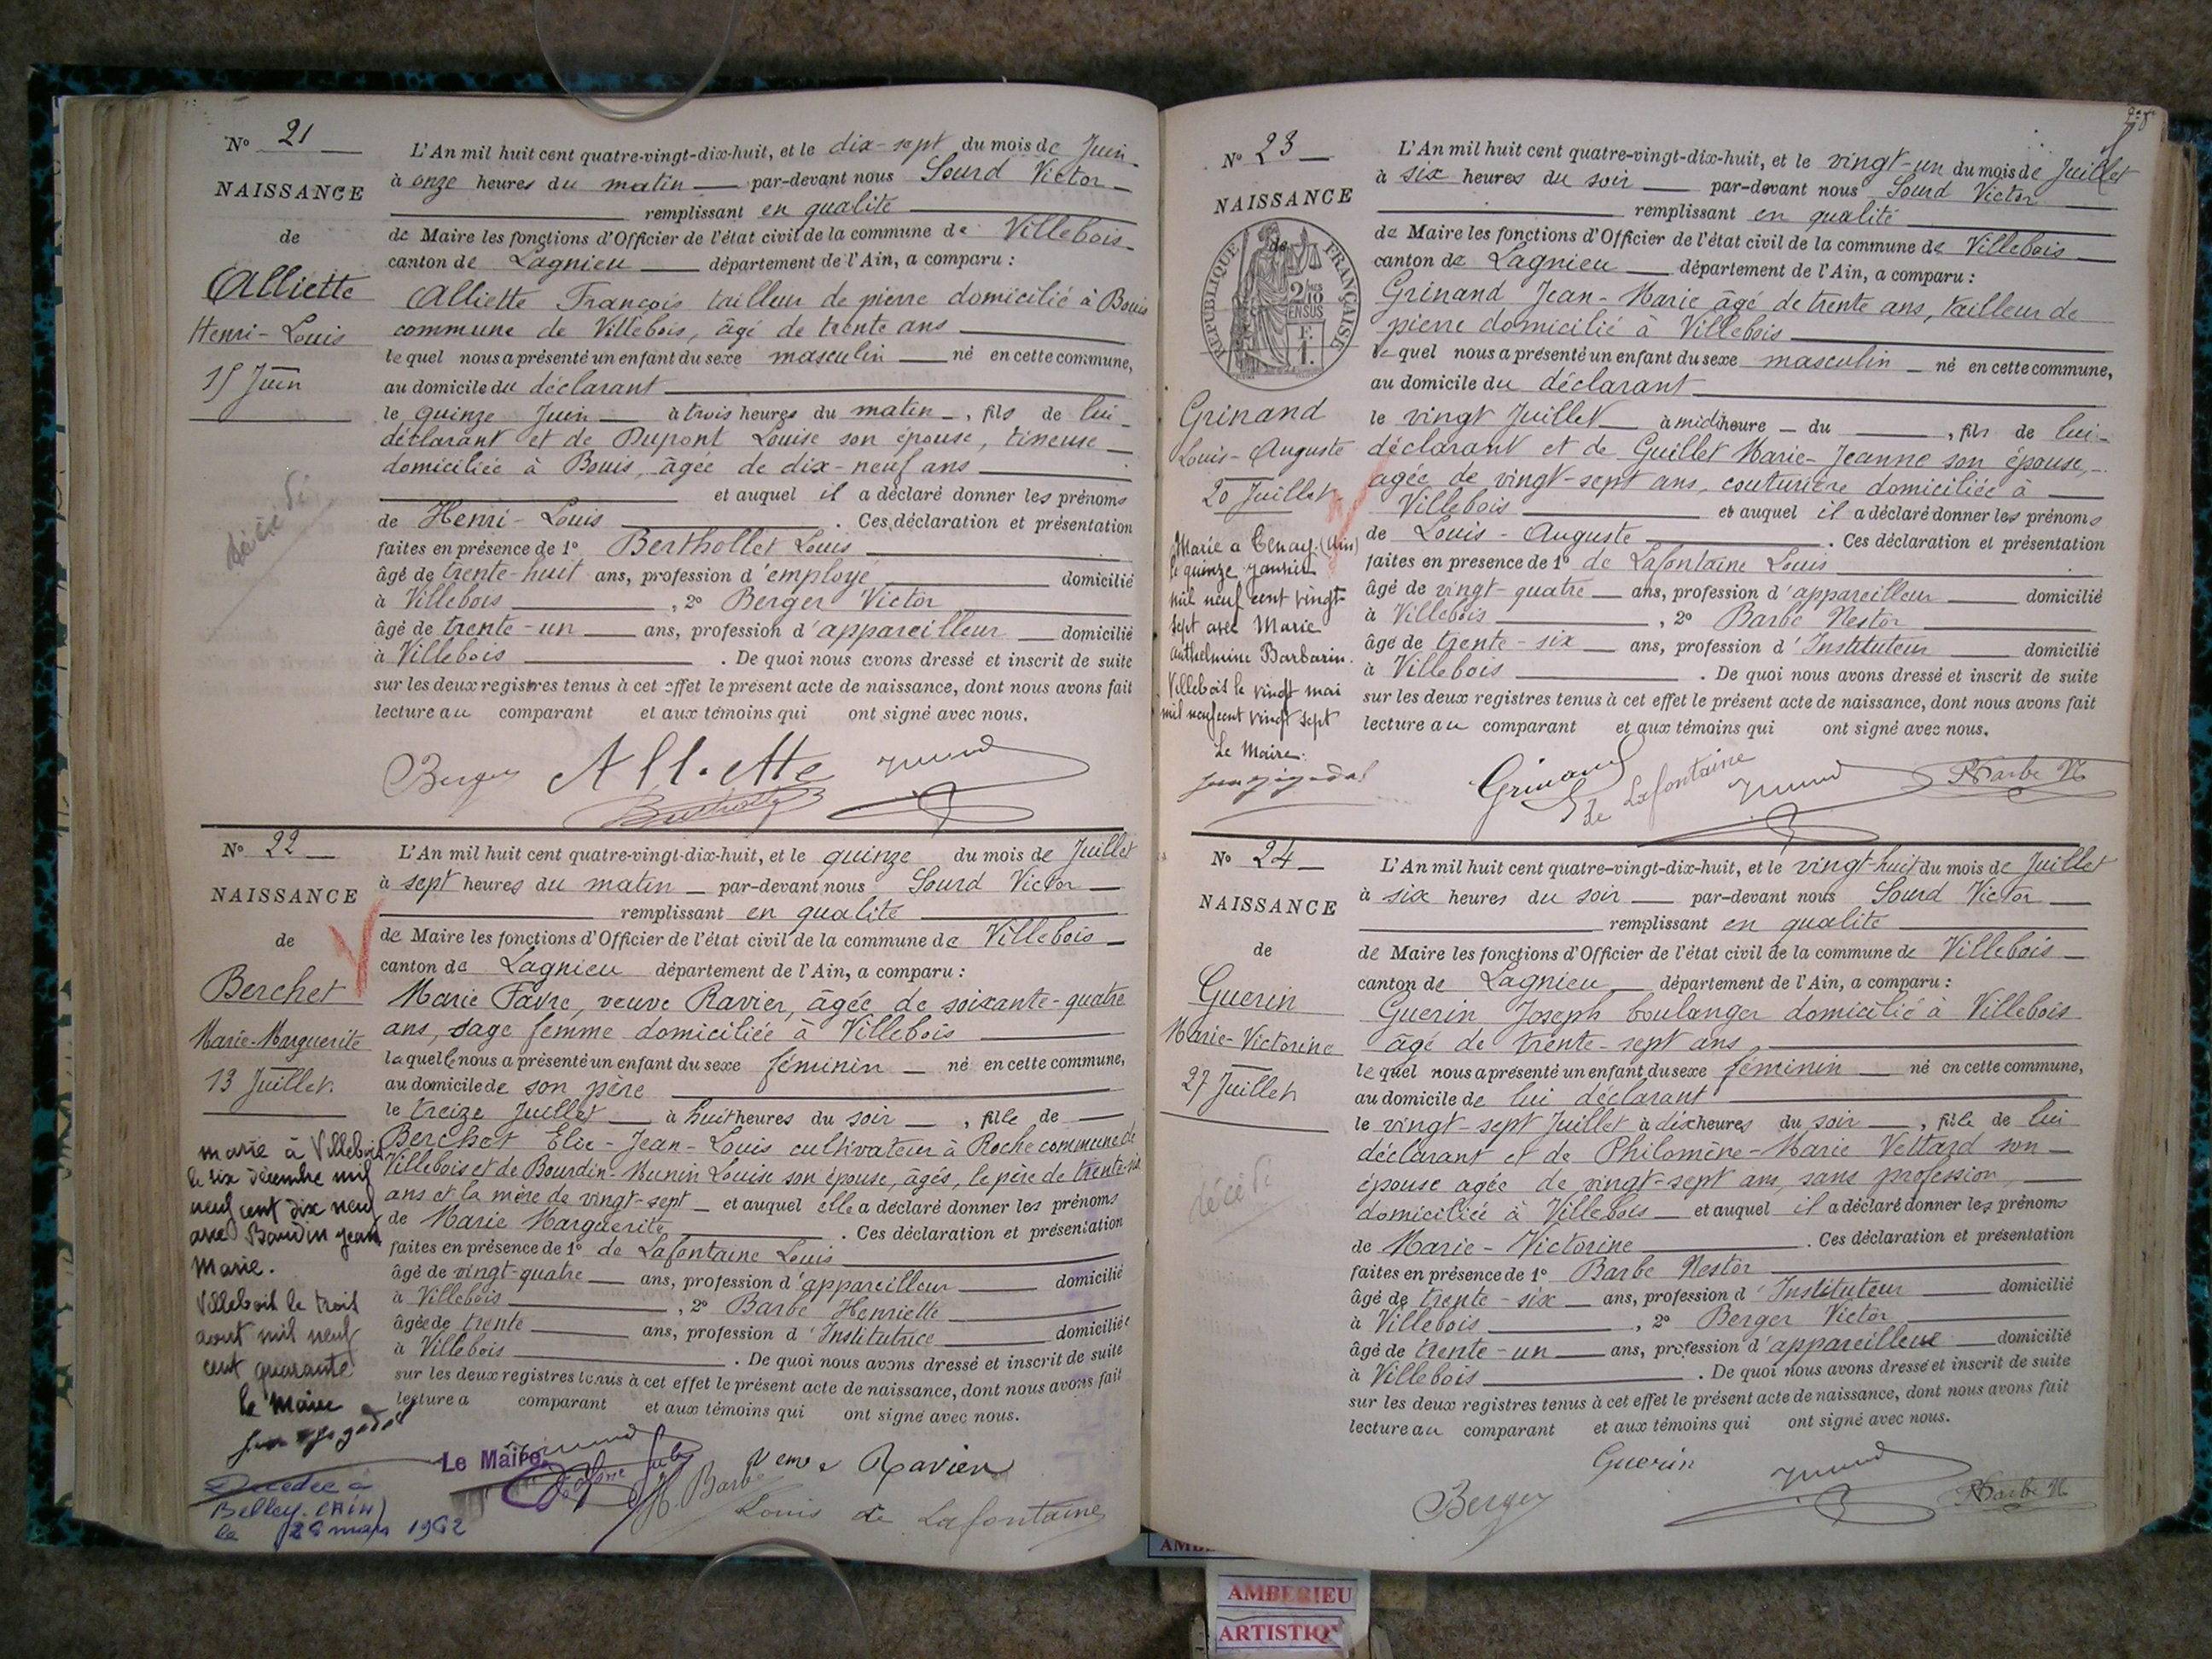 N° 21
NAISSANCE
de
Alliette
Henri-Louis
15 Juin
décédé
L'An mil huit cent quatre-vingt-dix-huit, et le dix-sept du mois de Juin
à onze heures du matin par-devant nous Sourd Victor
remplissant en qualité
de Maire les fonctions d'Officier de l'état civil de la commune de Villebois
canton de Lagnieu département de l'Ain, a comparu :
Alliette François tailleur de pierre domicilié à Bouis
commune de Villebois, âgé de trente ans
lequel nous a présenté un enfant du sexe masculin né en cette commune,
au domicile du déclarant
le quinze Juin à trois heures du matin, fils de lui
déclarant et de Dupont Louise son épouse, tisseuse
domiciliée à Bouis, âgée de dix-neuf ans
et auquel il a déclaré donner les prénoms
de Henri-Louis. Ces déclaration et présentation
faites en présence de 1° Berthollet Louis
âgé de trente-huit ans, profession d'employé domicilié
à Villebois, 2° Berger Victor
âgé de trente-un ans, profession d'appareilleur domicilié
à Villebois. De quoi nous avons dressé et inscrit de suite
sur les deux registres tenus à cet effet le présent acte de naissance, dont nous avons fait
lecture au comparant et aux témoins qui ont signé avec nous.
Berger Alliette
N° 22
NAISSANCE
de
Berchet
Marie-Marguerite
13 Juillet
marié à Villebois
le six décembre mil
neuf cent dix neuf
avec Baudin Jean
Marie.
Villebois le trois
aout mil neuf
cent quarante
le Maire
Décédée à
Belley (AIN)
le 26 mars 1962
L'An mil huit cent quatre-vingt-dix-huit, et le quinze du mois de Juillet
à sept heures du matin par-devant nous Sourd Victor
remplissant en qualité
de Maire les fonctions d'Officier de l'état civil de la commune de Villebois
canton de Lagnieu département de l'Ain, a comparu :
Marie Favre, veuve Ravier, âgée de soixante-quatre
ans, sage femme domiciliée à Villebois
laquelle nous a présenté un enfant du sexe féminin né en cette commune,
au domicile de son père
le treize Juillet à huit heures du soir, fille de
Berchet Elie-Jean-Louis cultivateur à Roche commune de
Villebois et de Bourdin-Munin Louise son épouse, âgés, le père de trente-six
ans et la mère de vingt-sept et auquel elle a déclaré donner les prénoms
de Marie Marguerite. Ces déclaration et présentation
faites en présence de 1° de Lafontaine Louis
âgé de vingt-quatre ans, profession d'appareilleur domicilié
à Villebois, 2° Barbe Henriette
âgée de trente ans, profession d'Institutrice domiciliée
à Villebois. De quoi nous avons dressé et inscrit de suite
sur les deux registres tenus à cet effet le présent acte de naissance, dont nous avons fait
lecture a comparant et aux témoins qui ont signé avec nous.
Le Maire,
H. Barbe Veuve Ravier
Louis de Lafontaine
N° 23
NAISSANCE
de
RÉPUBLIQUE FRANÇAISE
2/10 EN SUS
F.
1.
Grinand
Louis-Auguste
20 Juillet
Marié à Tenay (Ain)
le quinze janvier
mil neuf cent vingt
sept avec Marie
Anthelmine Barbarin.
Villebois le vingt mai
mil neuf cent vingt sept
Le Maire:
L'An mil huit cent quatre-vingt-dix-huit, et le vingt-un du mois de Juillet
à six heures du soir par-devant nous Sourd Victor
remplissant en qualité
de Maire les fonctions d'Officier de l'état civil de la commune de Villebois
canton de Lagnieu département de l'Ain, a comparu :
Grinand Jean-Marie âgé de trente ans, tailleur de
pierre domicilié à Villebois
lequel nous a présenté un enfant du sexe masculin né en cette commune,
au domicile du déclarant
le vingt Juillet à midi heure du, fils de lui-
déclarant et de Guillet Marie-Jeanne son épouse,
agée de vingt-sept ans, couturière domiciliée à
Villebois et auquel il a déclaré donner les prénoms
de Louis-Auguste. Ces déclaration et présentation
faites en présence de 1° de Lafontaine Louis
âgé de vingt-quatre ans, profession d'appareilleur domicilié
à Villebois, 2° Barbe Nestor
âgé de trente-six ans, profession d'Instituteur domicilié
à Villebois. De quoi nous avons dressé et inscrit de suite
sur les deux registres tenus à cet effet le présent acte de naissance, dont nous avons fait
lecture au comparant et aux témoins qui ont signé avec nous.
Grinand L de Lafontaine Barbe N
N° 24
NAISSANCE
de
Guerin
Marie-Victorine
27 Juillet
décédé
L'An mil huit cent quatre-vingt-dix-huit, et le vingt-huit du mois de Juillet
à six heures du soir par-devant nous Sourd Victor
remplissant en qualité
de Maire les fonctions d'Officier de l'état civil de la commune de Villebois
canton de Lagnieu département de l'Ain, a comparu :
Guerin Joseph boulanger domicilié à Villebois
âgé de trente-sept ans,
lequel nous a présenté un enfant du sexe féminin né en cette commune,
au domicile de lui déclarant
le vingt-sept Juillet à dix heures du soir, fille de lui
déclarant et de Philomène-Marie Vettard son
épouse agée de vingt-sept ans, sans profession,
domiciliée à Villebois et auquel il a déclaré donner les prénoms
de Marie-Victorine. Ces déclaration et présentation
faites en présence de 1° Barbe Nestor
âgé de trente-six ans, profession d'Instituteur domicilié
à Villebois, 2° Berger Victor
âgé de trente-un ans, profession d'appareilleur domicilié
à Villebois. De quoi nous avons dressé et inscrit de suite
sur les deux registres tenus à cet effet le présent acte de naissance, dont nous avons fait
lecture au comparant et aux témoins qui ont signé avec nous.
Guerin
Berger Barbe N
AMBERIEU
ARTISTIQ